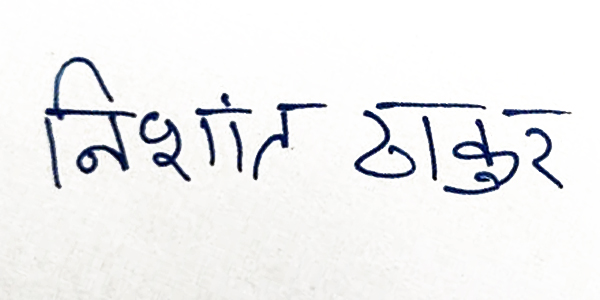 निशांत ठाकुर